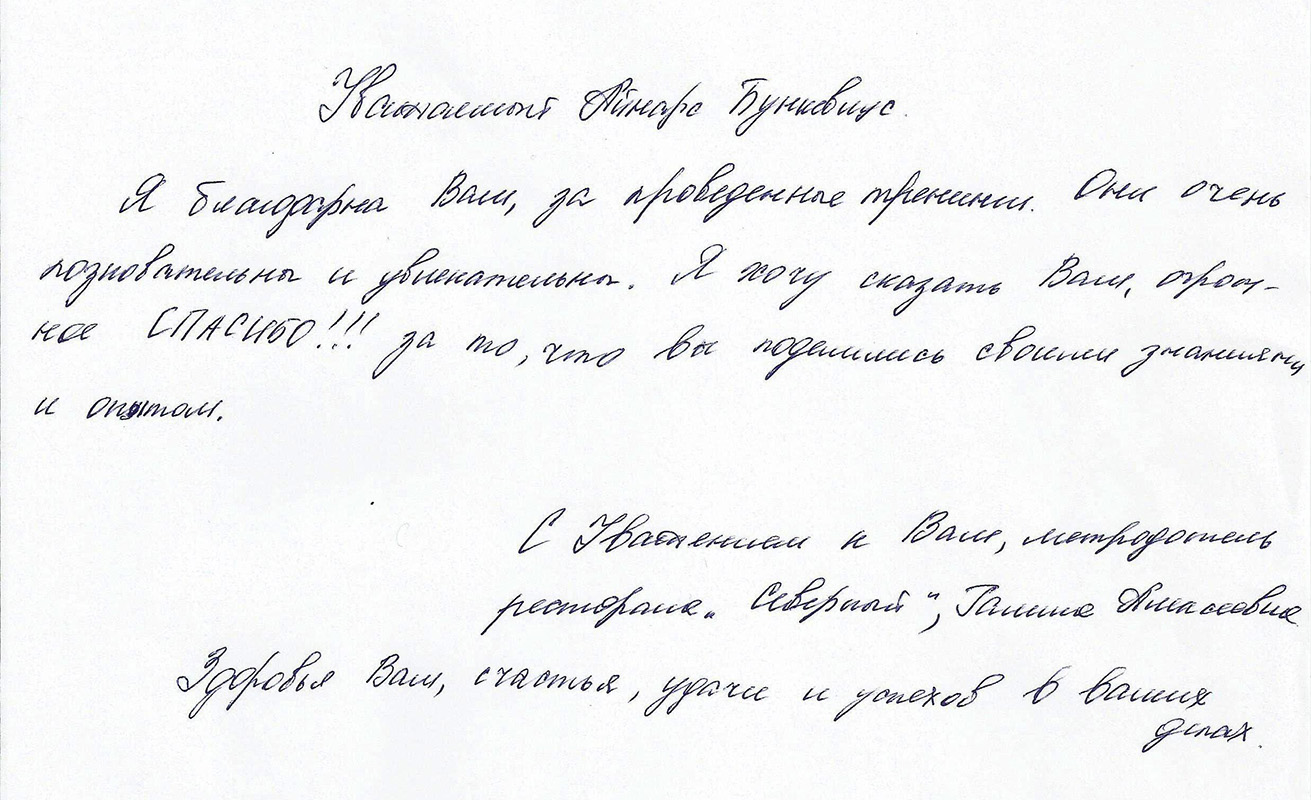 Уважаемый Айнарс Бункевиус.
Я благодарна Вам, за проведенные тренинги. Они очень
позновательны и увлекательны. Я хочу сказать Вам, огром-
ное СПАСИБО!!! за то, что вы поделились своими знаниями
и опытом.
С Уважением к Вам, метродотель
ресторана „Северный“, Галина Алексеевна
Здоровья Вам, счастья, удачи и успехов в ваших
делах.